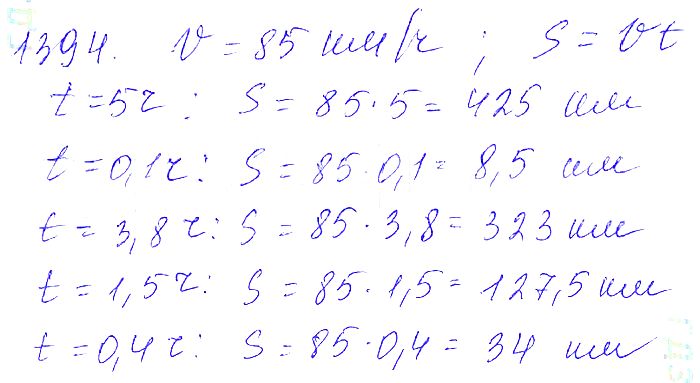 1394. V = 85 км/ч ; S = Vt
t = 5ч : S = 85 · 5 = 425 км
t = 0,1ч : S = 85 · 0,1 = 8,5 км
t = 3,8 ч : S = 85 · 3,8 = 323 км
t = 1,5 ч : S = 85 · 1,5 = 127,5 км
t = 0,4 ч : S = 85 · 0,4 = 34 км